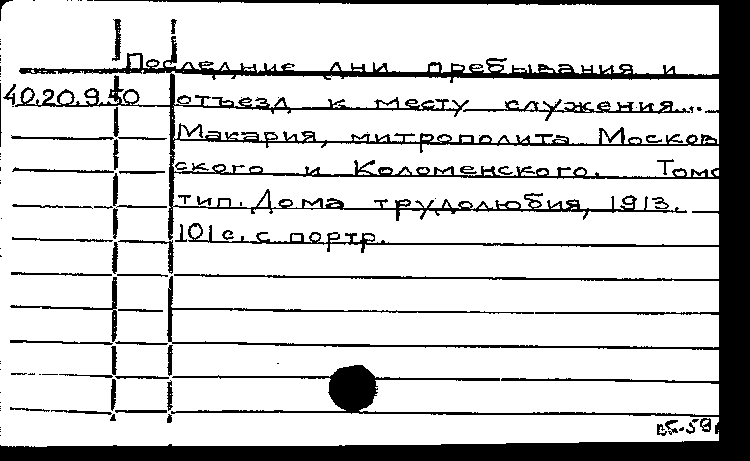 Последние дни пребывания и
40.20.9.50 отъезд к месту служения...
Макария, митрополита Москов
ского и Коломенского. Томс
тип. Дома трудолюбия, 1913.
101 с. с портр.